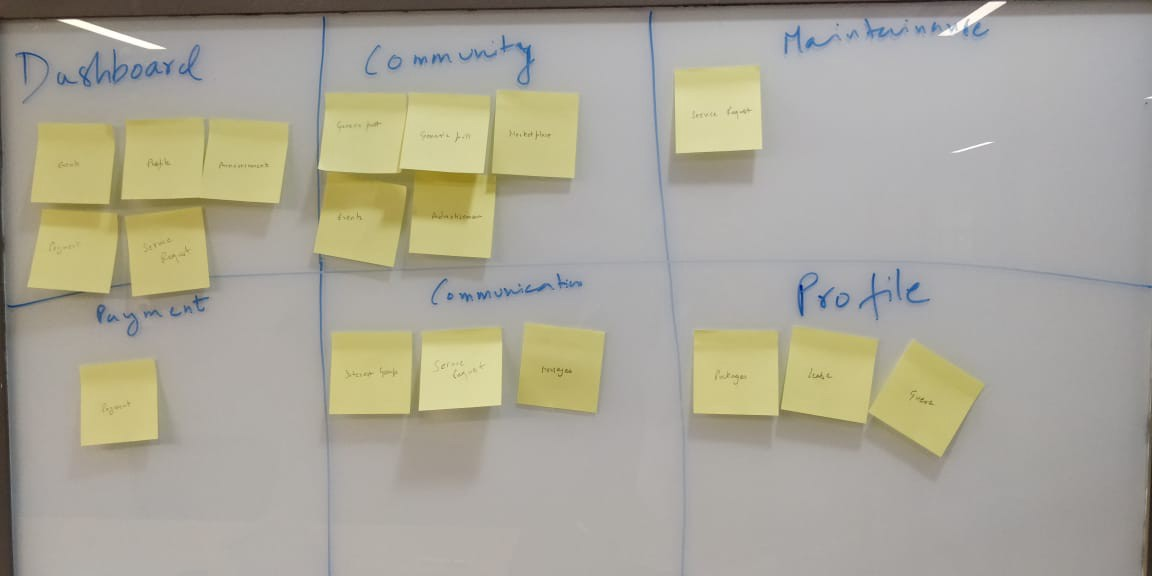 Dashboard
Events
Profile
Announcement
Payment
Service
Request
Community
Generic post
Generic poll
Marketplace
Events
Advertisemen
Maintainance
Service Request
Payment
Payment
Communication
Interest Group
Service
Request
Messages
Profile
Packages
Lease
Guest